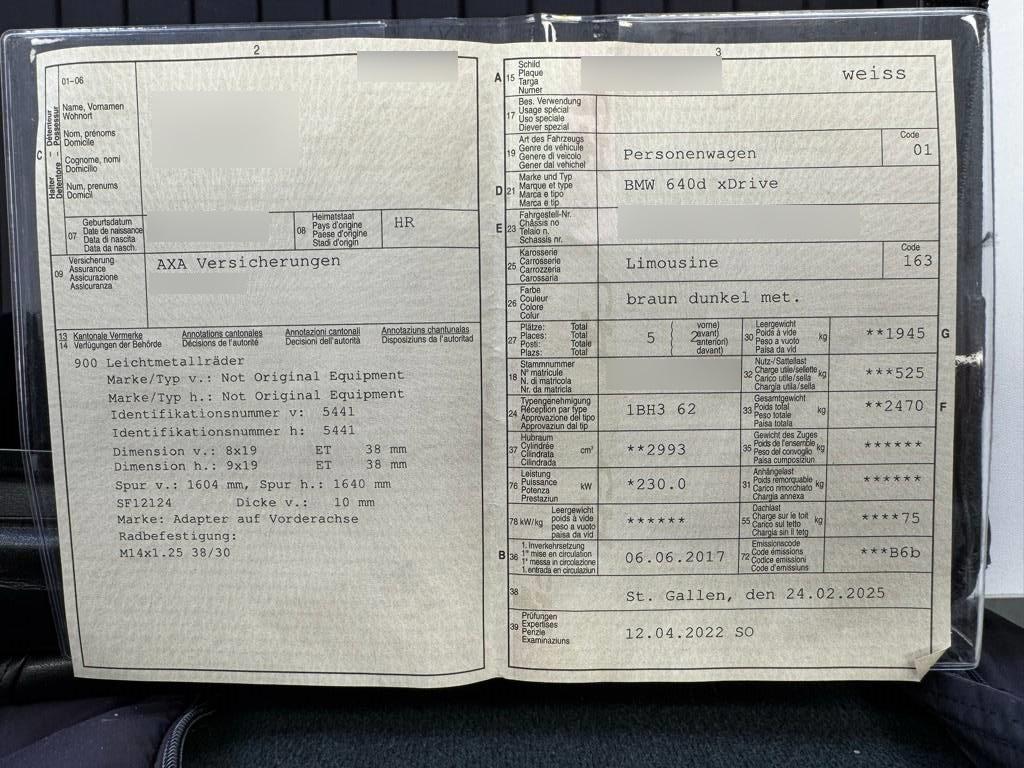 2
01-06
Halter - Détenteur
Detentore - Possessur
C
Name, Vornamen
Wohnort
Nom, prénoms
Domicile
Cognome, nomi
Domicilio
Num, prenums
Domicil
07
Geburtsdatum
Date de naissance
Data di nascita
Data da nasch.
08
Heimatstaat
Pays d'origine
Paese d'origine
Stadi d'origin
HR
09
Versicherung
Assurance
Assicurazione
Assicuranza
AXA Versicherungen
13 Kantonale Vermerke
14 Verfügungen der Behörde
Annotations cantonales
Décisions de l'autorité
Annotazioni cantonali
Decisioni dell'autorità
Annotaziuns chantunalas
Disposiziuns da l'autoritad
900 Leichtmetallräder
Marke/Typ v.: Not Original Equipment
Marke/Typ h.: Not Original Equipment
Identifikationsnummer v: 5441
Identifikationsnummer h: 5441
Dimension v.: 8x19 ET 38 mm
Dimension h.: 9x19 ET 38 mm
Spur v.: 1604 mm, Spur h.: 1640 mm
SF12124 Dicke v.: 10 mm
Marke: Adapter auf Vorderachse
Radbefestigung:
M14x1.25 38/30
3
A 15
Schild
Plaque
Targa
Numer
weiss
17
Bes. Verwendung
Usage spécial
Uso speciale
Diever spezial
19
Art des Fahrzeugs
Genre de véhicule
Genere di veicolo
Gener dal vehichel
Personenwagen
Code
01
D 21
Marke und Typ
Marque et type
Marca e tipo
Marca e tip
BMW 640d xDrive
E 23
Fahrgestell-Nr.
Châssis no
Telaio n.
Schassis nr.
25
Karosserie
Carrosserie
Carrozzeria
Carossaria
Limousine
Code
163
26
Farbe
Couleur
Colore
Colur
braun dunkel met.
27
Plätze: Total
Places: Total
Posti: Totale
Plazs: Total
5
vorne)
avant)
anteriori)
davant)
2
30
Leergewicht
Poids à vide
Peso a vuoto
Paisa da vid
kg
**1945
G
18
Stammnummer
N° matricule
N. di matricola
Nr. da matricla
32
Nutz-/Sattellast
Charge utile/sellette
Carico utile/sella
Chargia utila/sella
kg
***525
24
Typengenehmigung
Réception par type
Approvazione del tipo
Approvaziun dal tip
1BH3 62
33
Gesamtgewicht
Poids total
Peso totale
Paisa totala
kg
**2470
F
37
Hubraum
Cylindrée
Cilindrata
Cilindrada
cm³
**2993
35
Gewicht des Zuges
Poids de l'ensemble
Peso del convoglio
Paisa cumposiziun
kg
******
76
Leistung
Puissance
Potenza
Prestaziun
kW
*230.0
31
Anhängelast
Poids remorquable
Carico rimorchiato
Chargia annexa
kg
******
78 kW/kg
Leergewicht
poids à vide
peso a vuoto
paisa da vid
******
55
Dachlast
Charge sur le toit
Carico sul tetto
Chargia sin il tetg
kg
****75
B 36
1. Inverkehrsetzung
1re mise en circulation
1a messa in circolazione
1. entrada en circulaziun
06.06.2017
72
Emissionscode
Code émissions
Codice emissioni
Code d'emissiuns
***B6b
38
St. Gallen, den 24.02.2025
39
Prüfungen
Expertises
Perizie
Examinaziuns
12.04.2022 SO